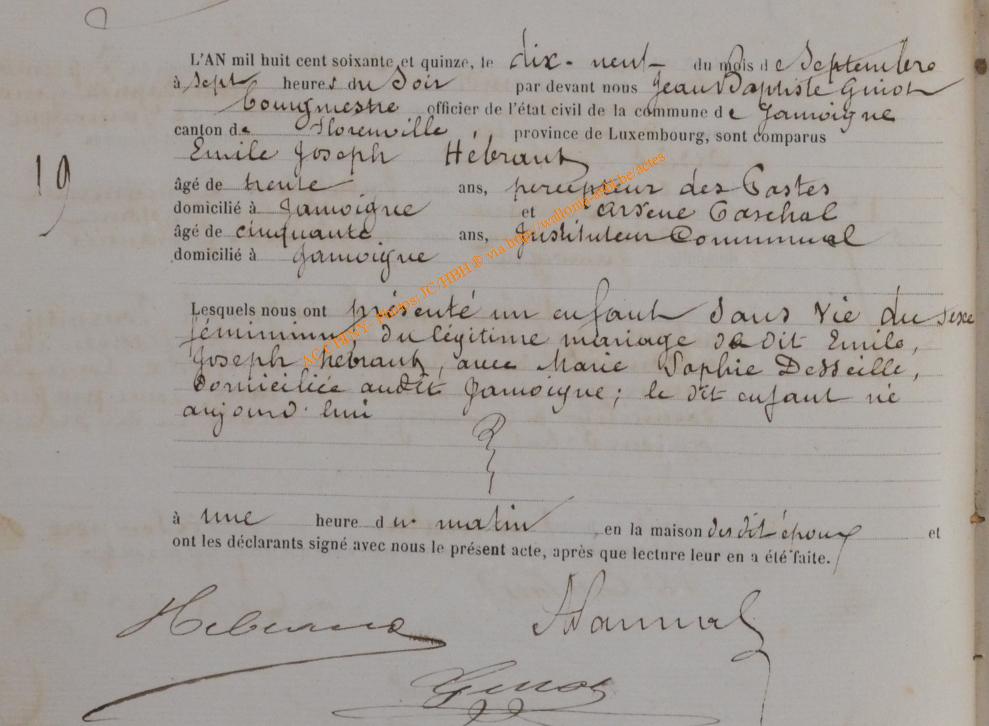 L'AN mil huit cent soixante et quinze, le dix-neuf du mois de Septembre
à sept heures du Soir par devant nous Jean Baptiste Ginot
bourgmestre officier de l'état civil de la commune de Jamoigne
canton de Florenville province de Luxembourg, sont comparus
Emile Joseph Hébrant
19
âgé de trente ans, percepteur des Postes
domicilié à Jamoigne et Arsène Paschal
âgé de cinquante ans, Instituteur Communal
domicilié à Jamoigne
Lesquels nous ont présenté un enfant sans vie du sexe
féminin du légitime mariage du dit Emile,
Joseph Hebrant, avec Marie Sophie Desseille,
domiciliée audit Jamoigne; le dit enfant né
aujourd'hui
à une heure du matin en la maison des dit époux et
ont les déclarants signé avec nous le présent acte, après que lecture leur en a été faite.
Hebrant
Ginot